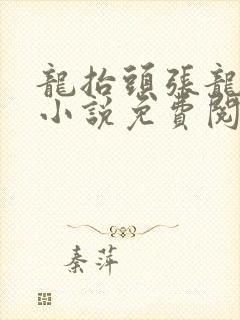 龍抬頭張龍
小說免費閱
秦萍